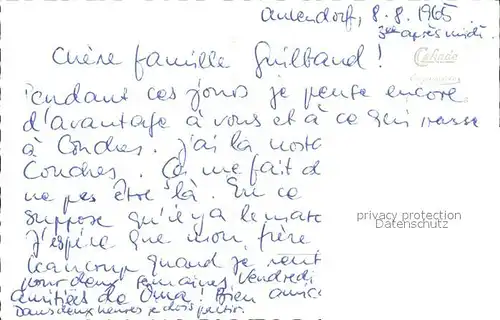 Amendorf, 8.8.1965
3ème après midi.
Chère famille Guilbaud!
Cekade
Pendant ces jours je pense encore
d'avantage à vous et à ce qui
à Condres. J'ai la
Condres. Ça me fait d
ne pas être là. En ce
suppose qu'il y a le mare
J'espère que mon frère
beaucoup quand je
pour deux semaines Vendredi
amitiés de Oma! Bien amic
Dans deux heures je dois partir.
privacy protection
Datenschutz